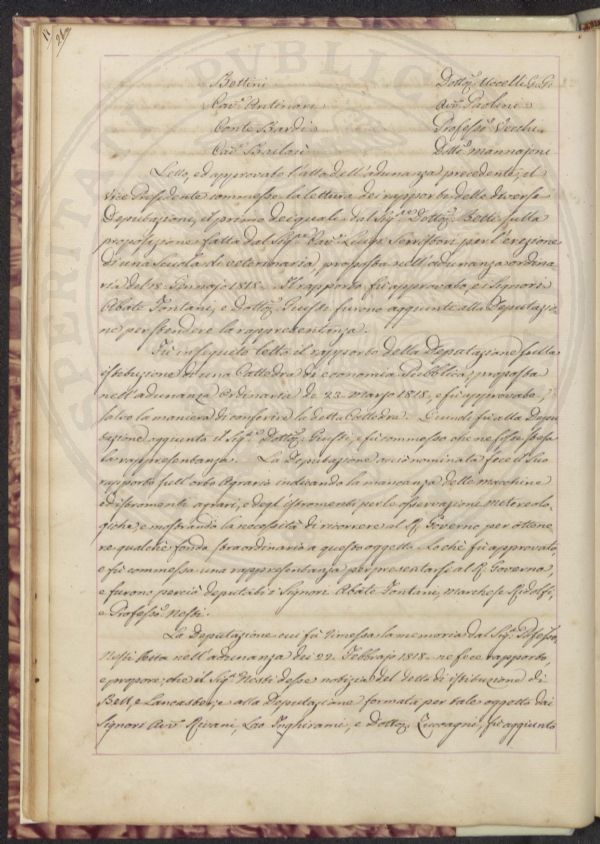 Bettini Dottor. Uccelli C. G.
Cav. Antinori Avv. Paolini
Conte Bardi Profess. Vecchi
Cav. Baillou Dott. Mannajoni
Letto, ed approvato l'atto dell'adunanza precedente, il
Vice Presidente commesse la lettura dei rapporti delle diverse
Deputazioni, il primo dei quali dal Sig.re Dottor. Betti sulla
proposizione fatta dal Sig.re Cav. Serristori per l'erezione
di una Scuola di veterinaria, proposta nell'adunanza ordina
ria del 18 Gennajo 1818. Il rapporto fù approvato, e i Signori
Abate Fontani, e Dottor. Giusti furono aggiunti alla Deputazio
ne per stendere la rappresentanza.
Fù in seguito letto il rapporto della Deputazione sulla
istituzione di una Cattedra di economia Pubblica, proposta
nell'adunanza Ordinaria de 22 Marzo 1818, e fù approvato,
salvo la maniera di conferire la detta Cattedra. Quindi fù alla Depu
tazione aggiunto il Sig. Dottor. Giusti, e fù commesso che ne fosse stesa
la rappresentanza. La Deputazione nominata fece il suo
rapporto sull'orto Agrario indicando la mancanza delle macchine
ed istromenti agrari, e degl'istromenti per le osservazioni Meteorolo
giche, e mostrando la necessità di ricorrere al R. Governo per ottene
re qualche fondo straordinario a questo oggetto. Lo chè fù approvato,
e fù commessa una rappresentanza per presentarsi al R. Governo,
e furono perciò deputati i Signori Abate Fontani, Marchese Ridolfi,
e Profess. Nesti.
La Deputazione cui fù rimessa la memoria dal Sig. Professor
Nesti letta nell'adunanza dei 22 Febbrajo 1818 ne fece rapporto,
e propose, che il Sig. Nesti desse notizia del detto di istituzione di
Bell, e Lancaster, e alla Deputazione formata per tale oggetto dai
Signori Avv. Rivani, Inghirami, e Dottor. Zuccagni, fù aggiunto